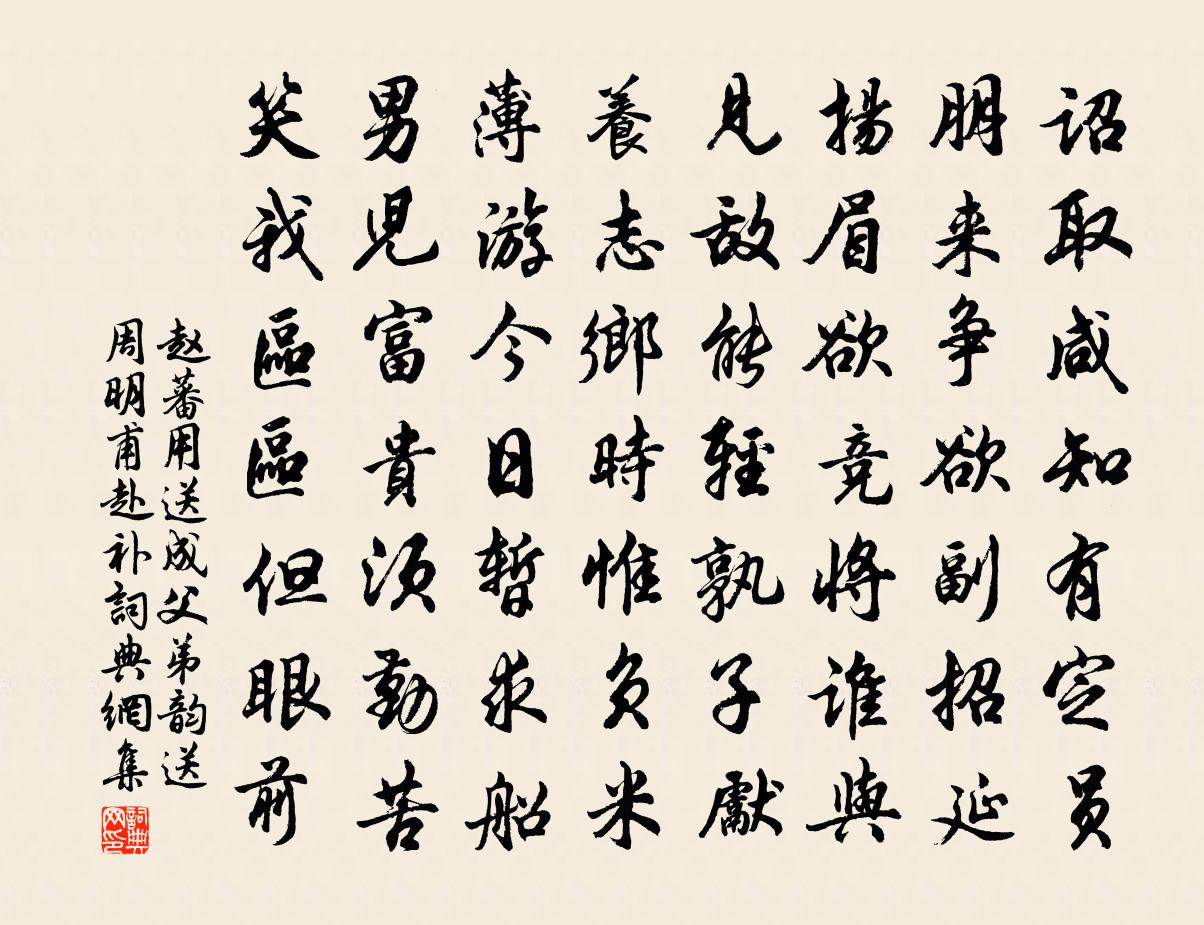 詔取咸知有定员
朋来争欲副招延
揚眉欲竞將谁與
見敌能輕孰子獻
養志鄉時惟负米
薄游今日暫求船
男児富貴须勤苦
笑我區區但眼前
赵蕃用送成父弟韵送
周明甫赴补詞典網集
詞典
网印